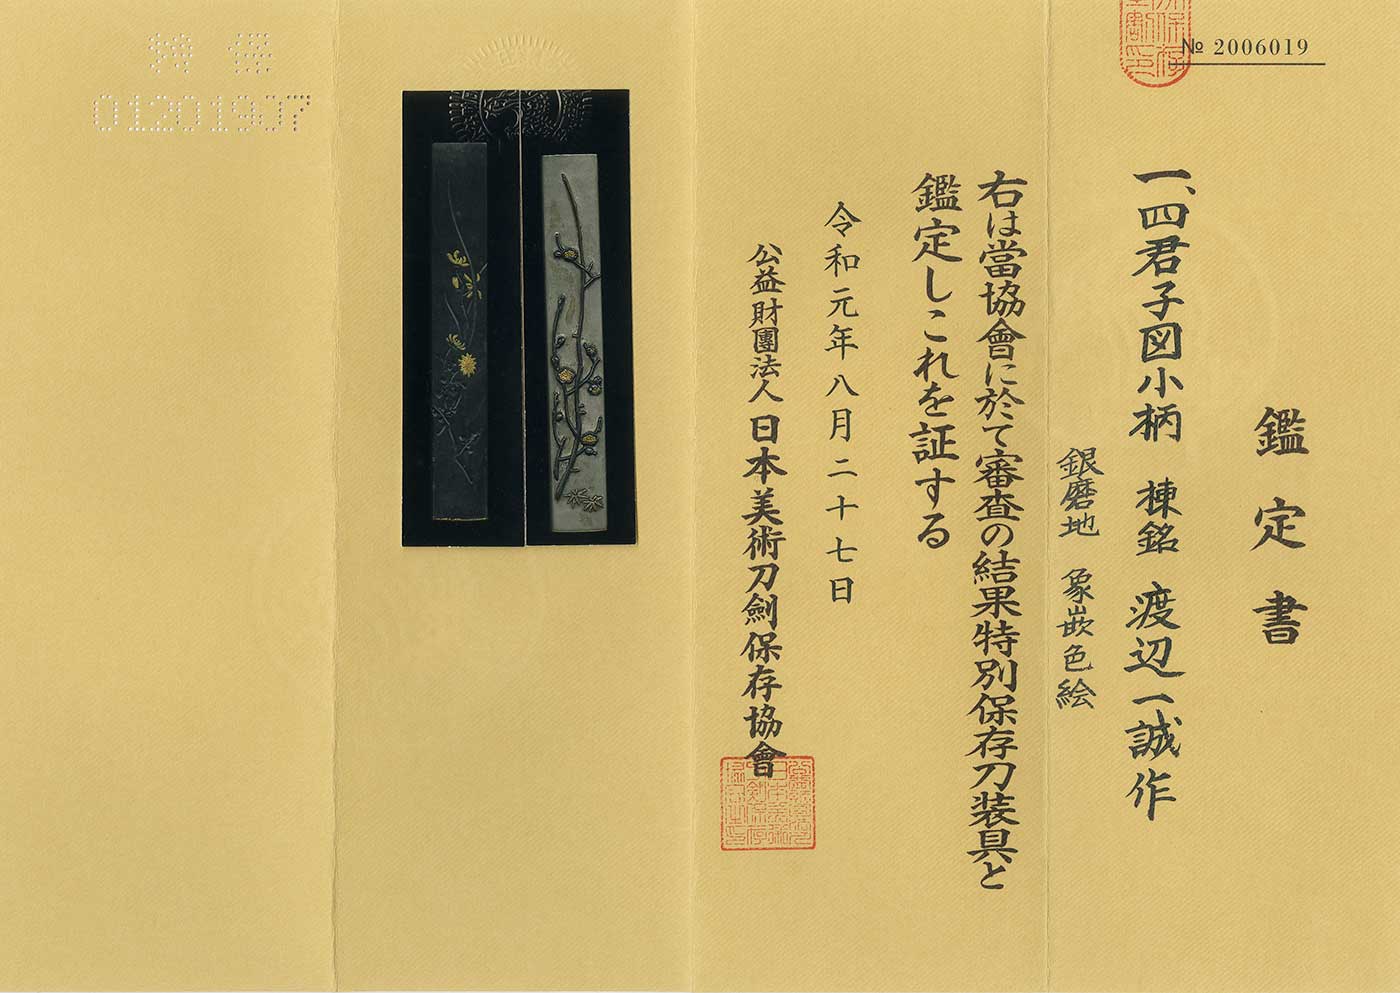 № 2006019
鑑定書
一、四君子図小柄 棟銘 渡辺一誠作
銀磨地 象嵌色絵
右は當協會に於て審査の結果特別保存刀装具と
鑑定しこれを証する
令和元年八月二十七日
公益財團法人 日本美術刀劍保存協會
01201907